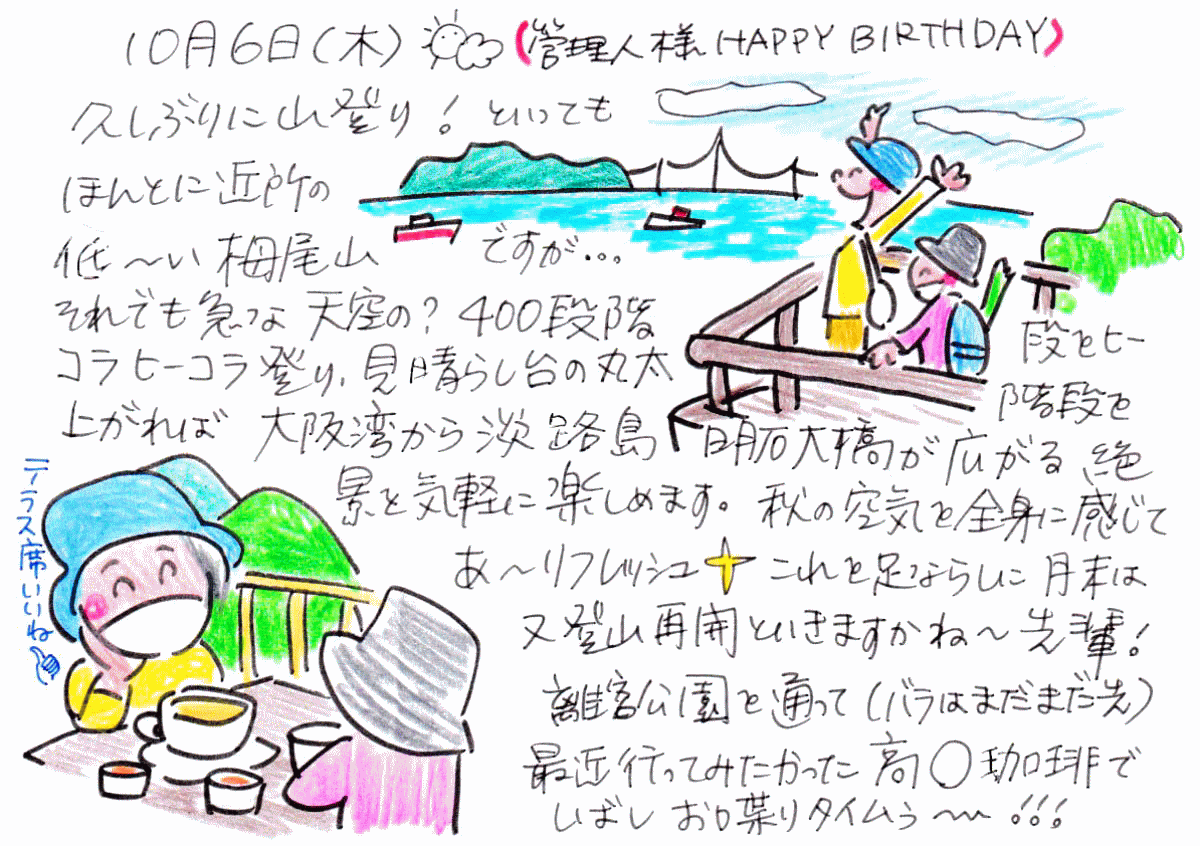 10月6日(木) (管理人様 HAPPY BIRTHDAY)
久しぶりに山登り！といっても
ほんとに近所の
低〜い栂尾山 ですが…
それでも急な天空の？400段階 段をヒー
コラヒーコラ登り、見晴らし台の丸太 階段を
上がれば 大阪湾から淡路島 明石大橋が広がる、絶
景を気軽に楽しめます。秋の空気を全身に感じて
あ〜リフレッシュ これを足ならしに月末は
又登山再開といきますかね〜先輩！
離宮公園を通って(バラはまだまだ先)
最近行ってみたかった高〇珈琲で
しばしお喋りタイムぅ〜!!!
テラス席いいね